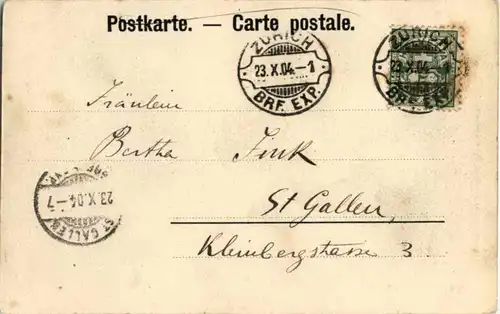 Postkarte. — Carte postale.
ZÜRICH
23.X.04.–1
BRF. EXP.
ZÜRICH
23.X.04.–1
BRF. EXP.
Fräulein
Bertha Fink
St Gallen,
Kleinbergstrasse 3
23.X.04–7
ST. GALLEN